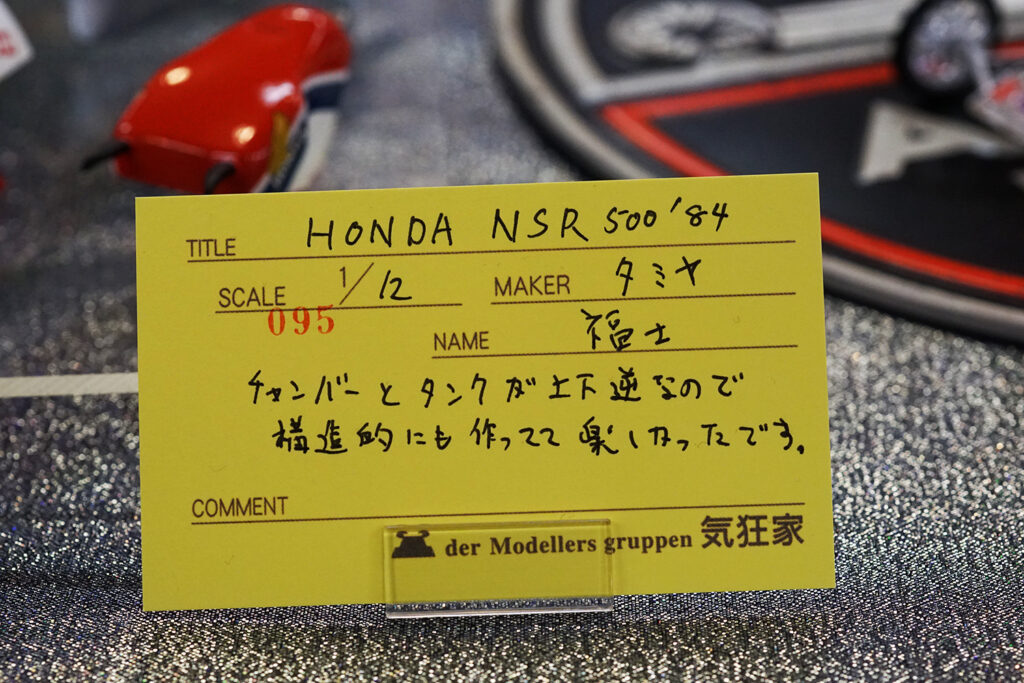 TITLE HONDA NSR 500 '84
SCALE 1/12 MAKER タミヤ
095
NAME 福士
チャンバーとタンクが上下逆なので
構造的にも作ってて楽しかったです。
COMMENT
der Modellers gruppen 気狂家
A